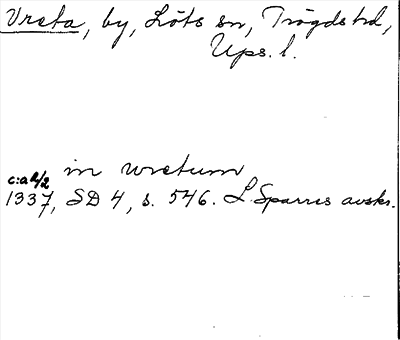 Vreta, by, Löts sn, Trögds hd,
Ups. l.
in wretum
c:a 4/2
1337, SD 4, s. 546. L. Sparres avskr.